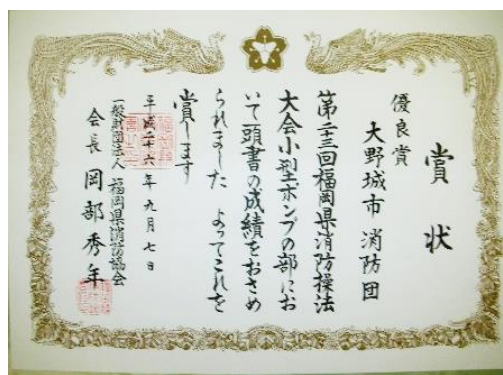 賞状
優良賞
大野城市 消防団
第二十三回福岡県消防操法
大会小型ポンプの部にお
いて頭書の成績をおさめ
られました よってこれを
賞します
平成二十六年九月七日
一般財団法人 福岡県消防協会
会長 岡部秀年